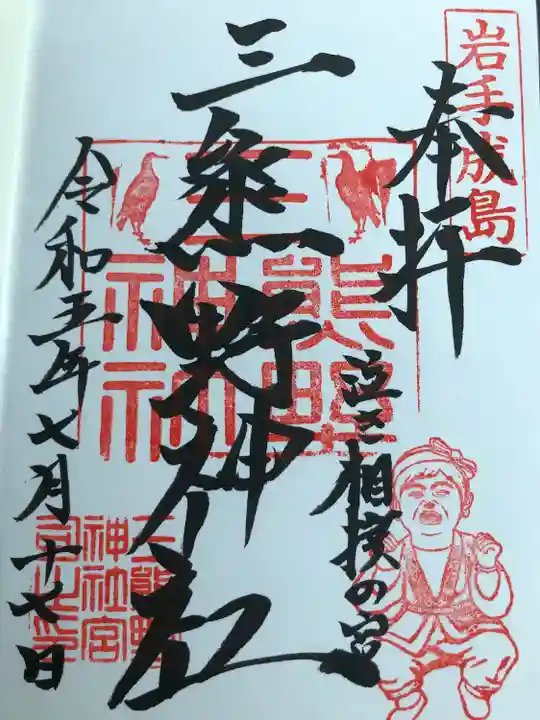 岩手成島
奉拝
泣き相撲の宮
三熊野神社
三熊野神社
令和五年七月十七日
三熊野
神社宮
司之印